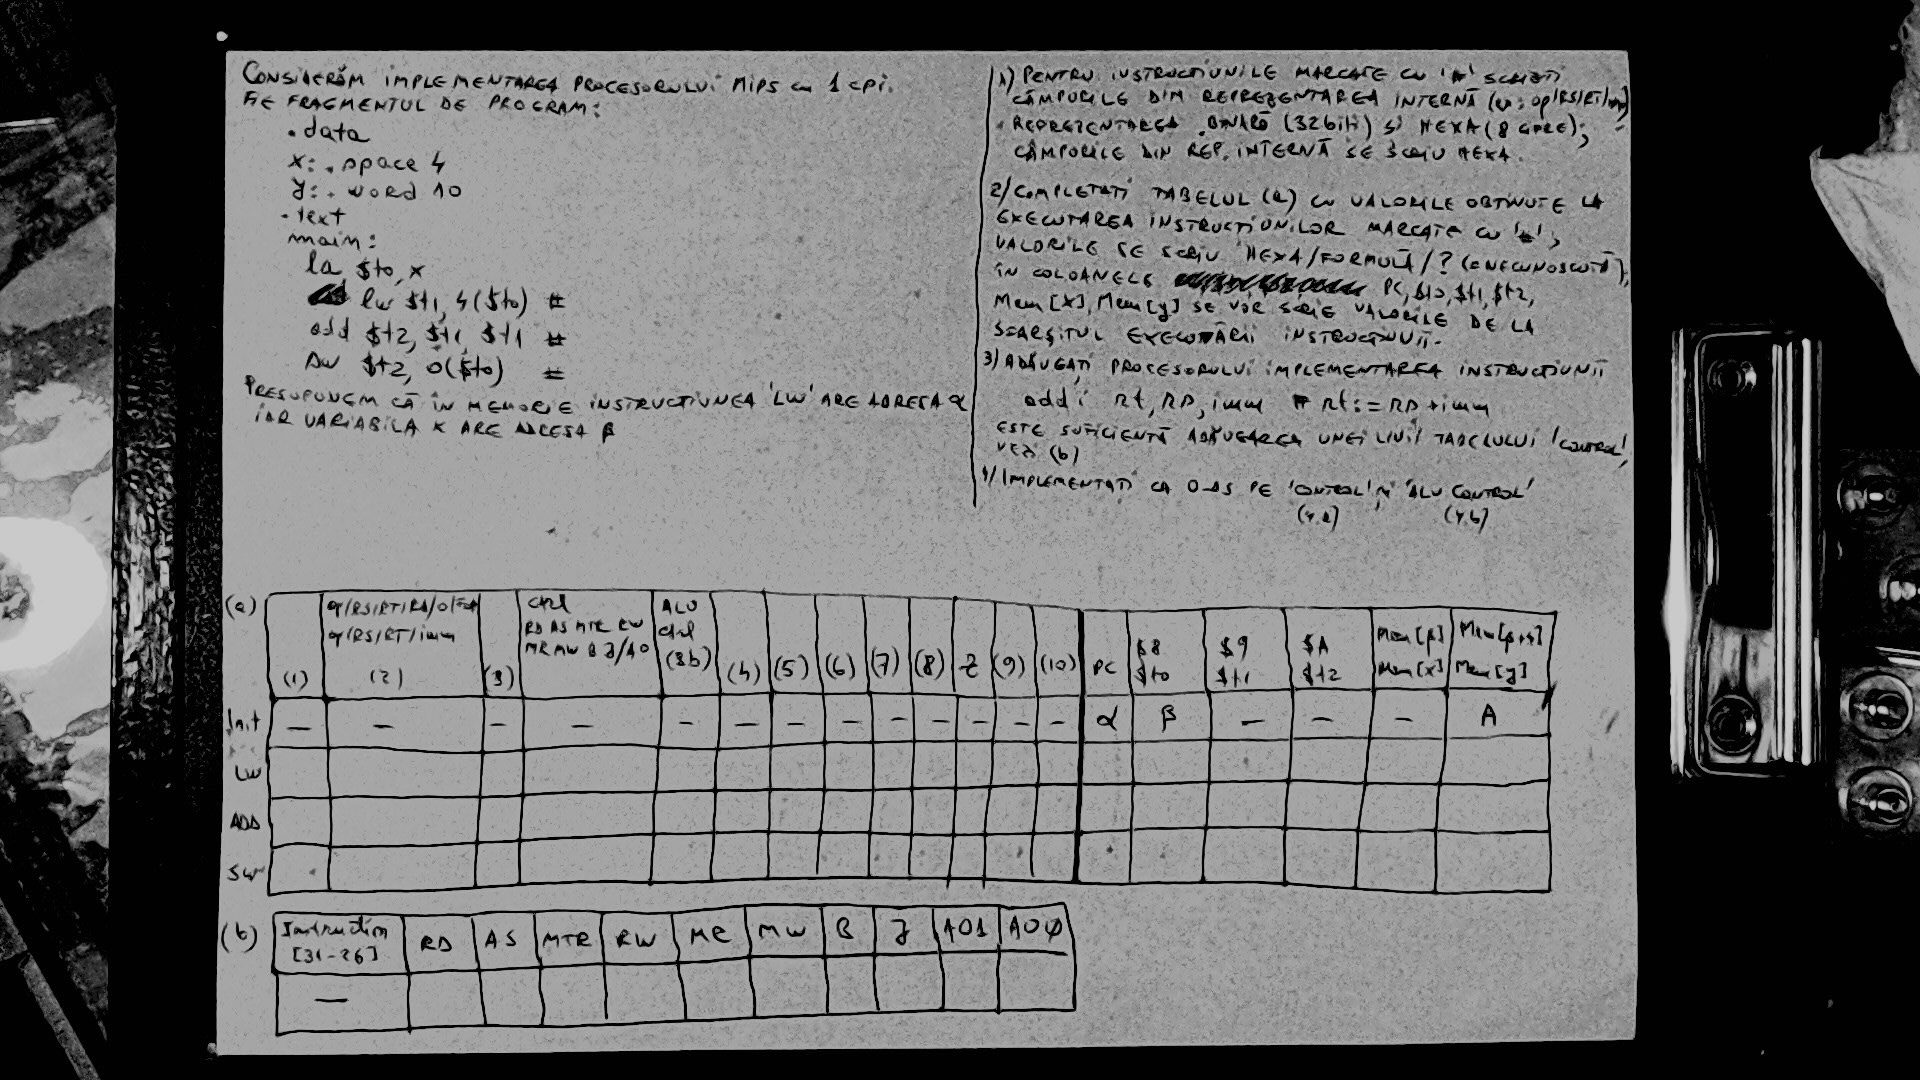 CONSIDERĂM IMPLEMENTAREA PROCESORULUI MIPS CU 1 CPI.
FIE FRAGMENTUL DE PROGRAM:
.data
x: .space 4
y: .word 10
.text
main:
la $t0, x
lw $t1, 4($t0) #
add $t2, $t1, $t1 #
sw $t2, 0($t0) #
PRESUPUNEM CĂ ÎN MEMORIE INSTRUCȚIUNEA 'LW' ARE ADRESA α
IAR VARIABILA X ARE ADRESA β
1) PENTRU INSTRUCȚIUNILE MARCATE CU '#' SCRIEȚI
CÂMPURILE DIN REPREZENTAREA INTERNĂ (op/RS/RT/
REPREZENTAREA BINARĂ (32 biți) ȘI HEXA (8 CIFRE);
CÂMPURILE DIN REP. INTERNĂ SE SCRIU HEXA.
2) COMPLETAȚI TABELUL (a) CU VALORILE OBȚINUTE LA
EXECUTAREA INSTRUCȚIUNILOR MARCATE CU '#';
VALORILE SE SCRIU HEXA/FORMULĂ/? (=NECUNOSCUTĂ),
ÎN COLOANELE PC, $t0, $t1, $t2,
Mem[X], Mem[y] SE VOR SCRIE VALORILE DE LA
SFÂRȘITUL EXECUTĂRII INSTRUCȚIUNII.
3) ADĂUGAȚI PROCESORULUI IMPLEMENTAREA INSTRUCȚIUNII
addi rt, RS, imm # Rt:=RS+imm
ESTE SUFICIENTĂ ADĂUGAREA UNEI LINII TABELULUI 'CONTROL',
VEZI (b)
4) IMPLEMENTAȚI CA 0-DS PE 'CONTROL' ȘI 'ALU CONTROL'
(4.a) (4.b)
(a)
(1)
op/RS/RT/RD/0/Fct
op/RS/RT/imm
(2)
(3)
Ctrl
RD AS MTR RW
MR MW B J/AO
ALU
ctrl
(3b)
(4) (5) (6) (7) (8) Z (9) (10) PC
$8
$t0
$9
$t1
$A
$t2
Mem[β]
Mem[x]
Mem[β+4]
Mem[y]
Init — — — — — — — — — — — — — α β — — — A
LW
ADD
SW
(b)
Instruction
[31-26]
RD AS MTR RW MR MW B J AO1 AO0
—